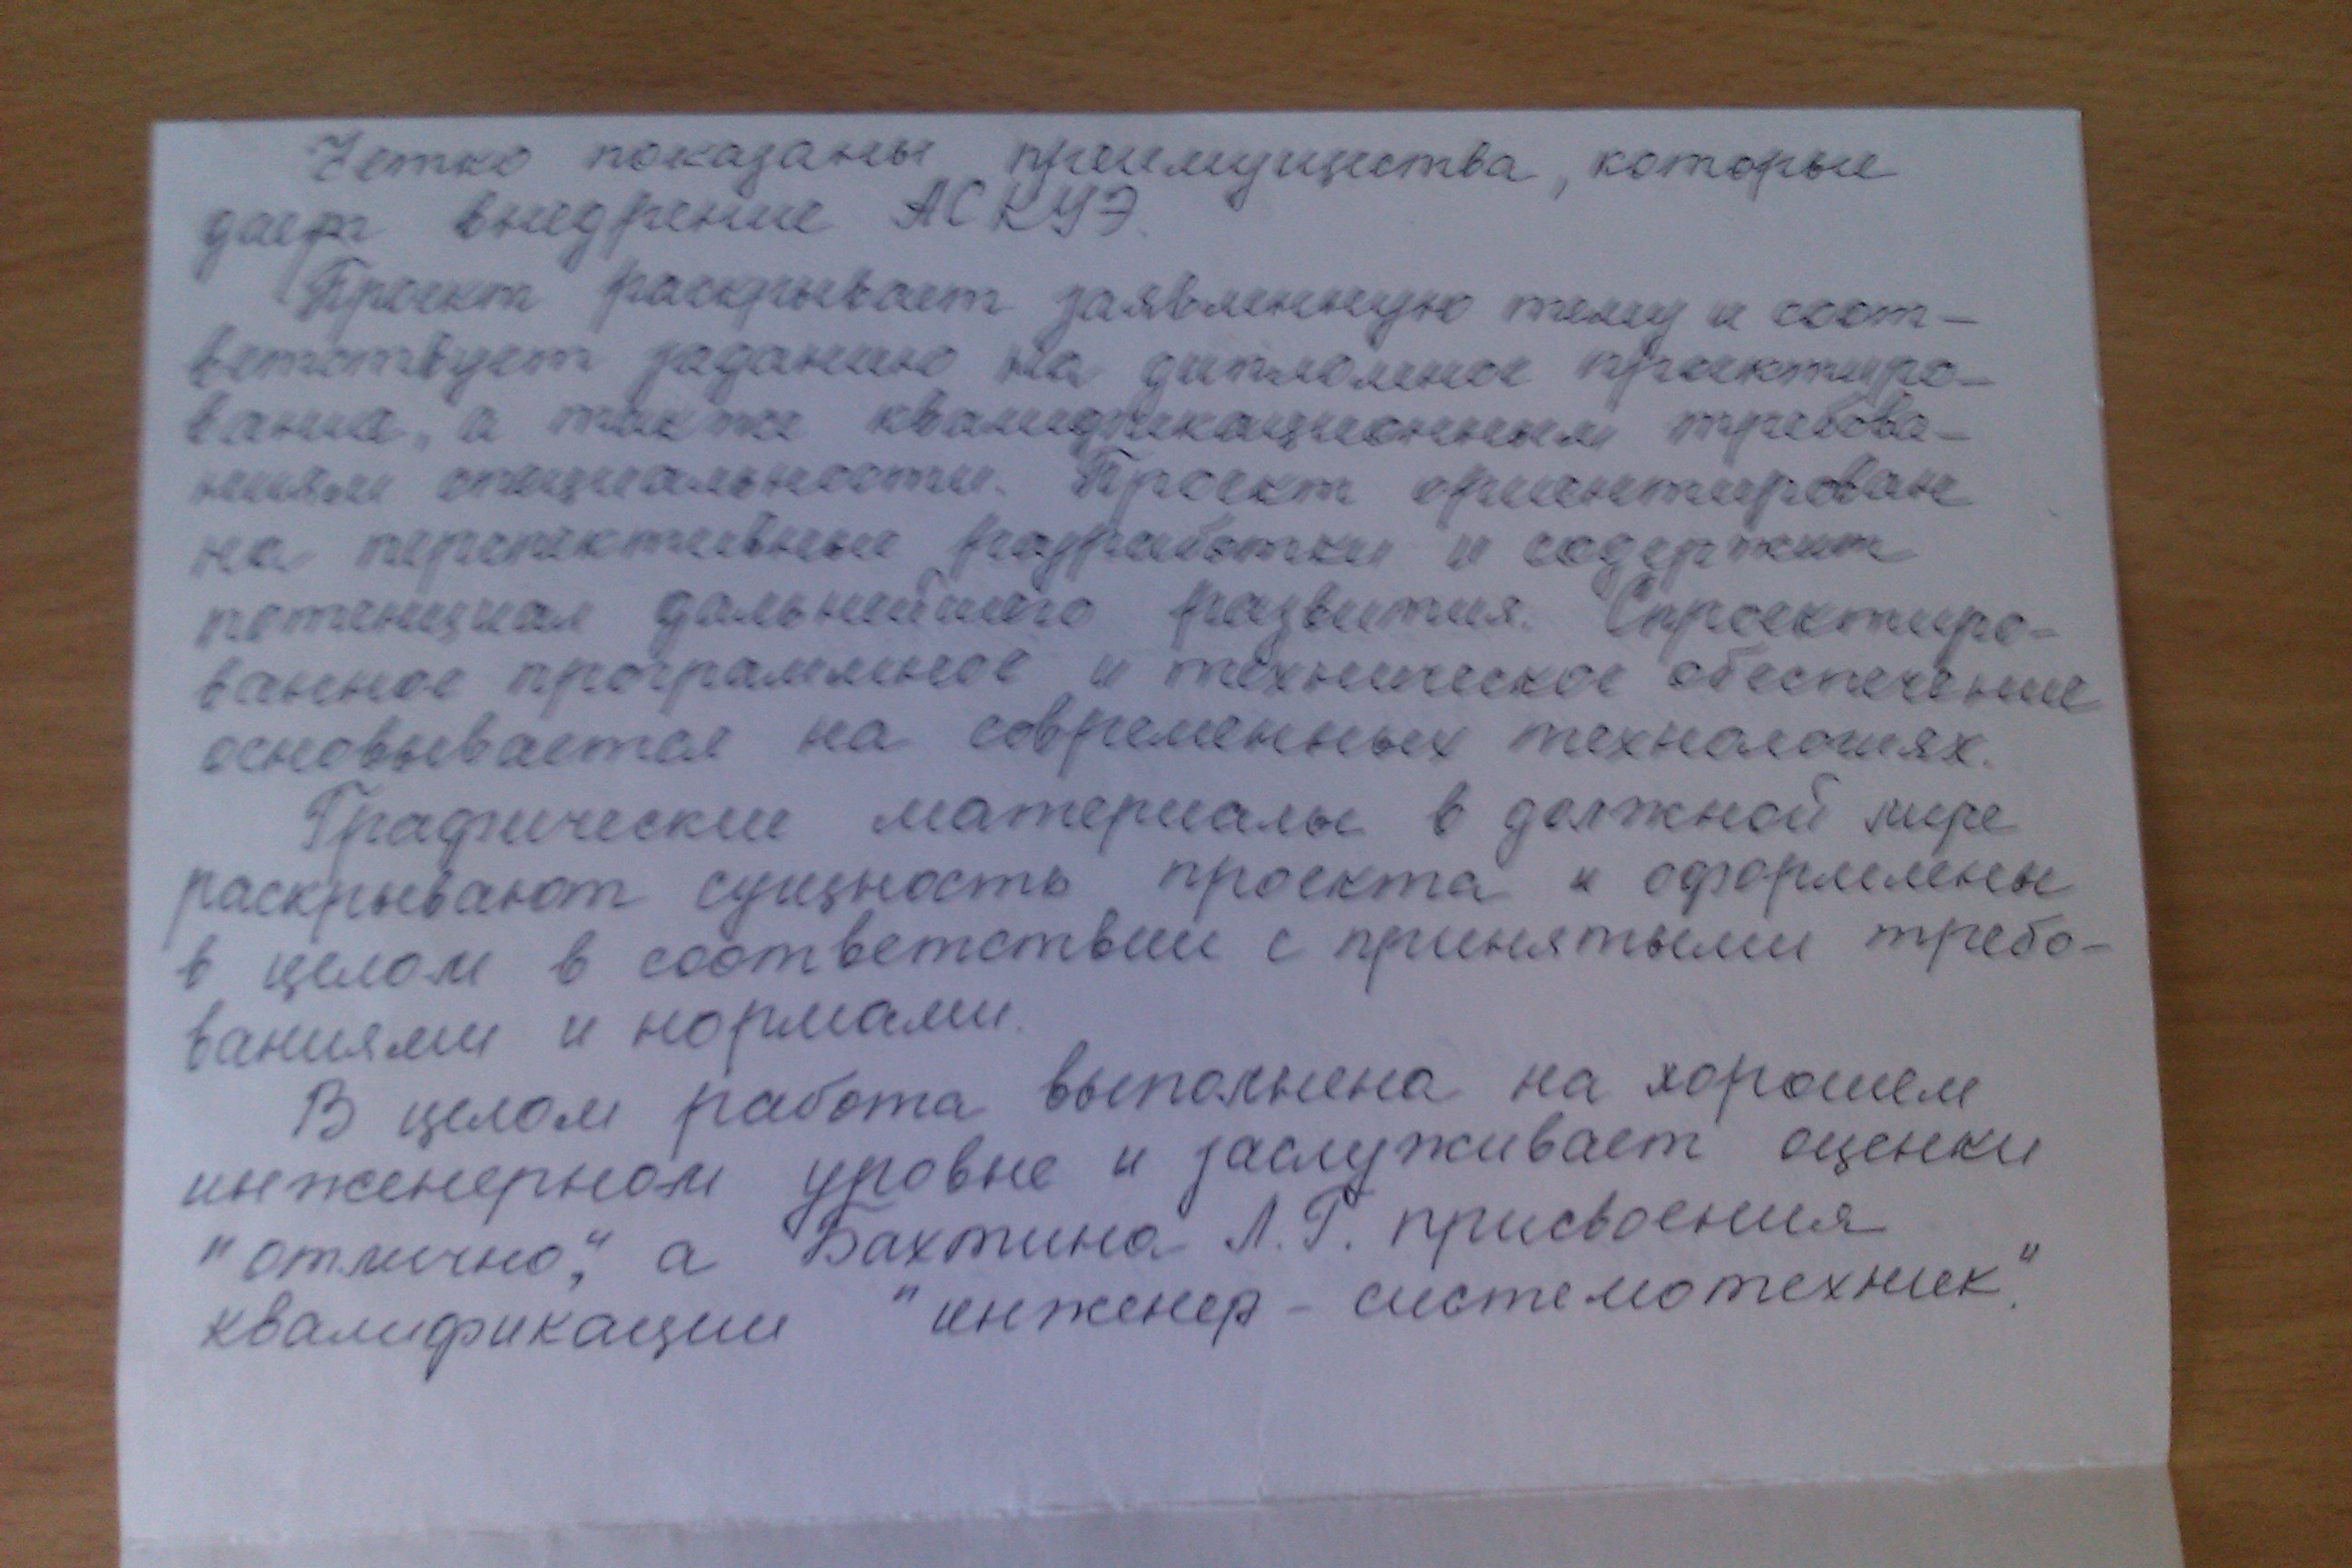 Четко показаны преимущества, которые
дает внедрение АСКУЭ.
Проект раскрывает заявленную тему и соот-
ветствует заданию на дипломное проектиро-
вание, а также квалификационным требова-
ниям специальности. Проект ориентирован
на перспективные разработки и содержит
потенциал дальнейшего развития. Спроектиро-
ванное программное и техническое обеспечение
основывается на современных технологиях.
Графические материалы в должной мере
раскрывают сущность проекта и оформлены
в целом в соответствии с принятыми требо-
ваниями и нормами.
В целом работа выполнена на хорошем
инженерном уровне и заслуживает оценки
"отлично", а Бахтина Л.Г. присвоения
квалификации "инженер-системотехник".